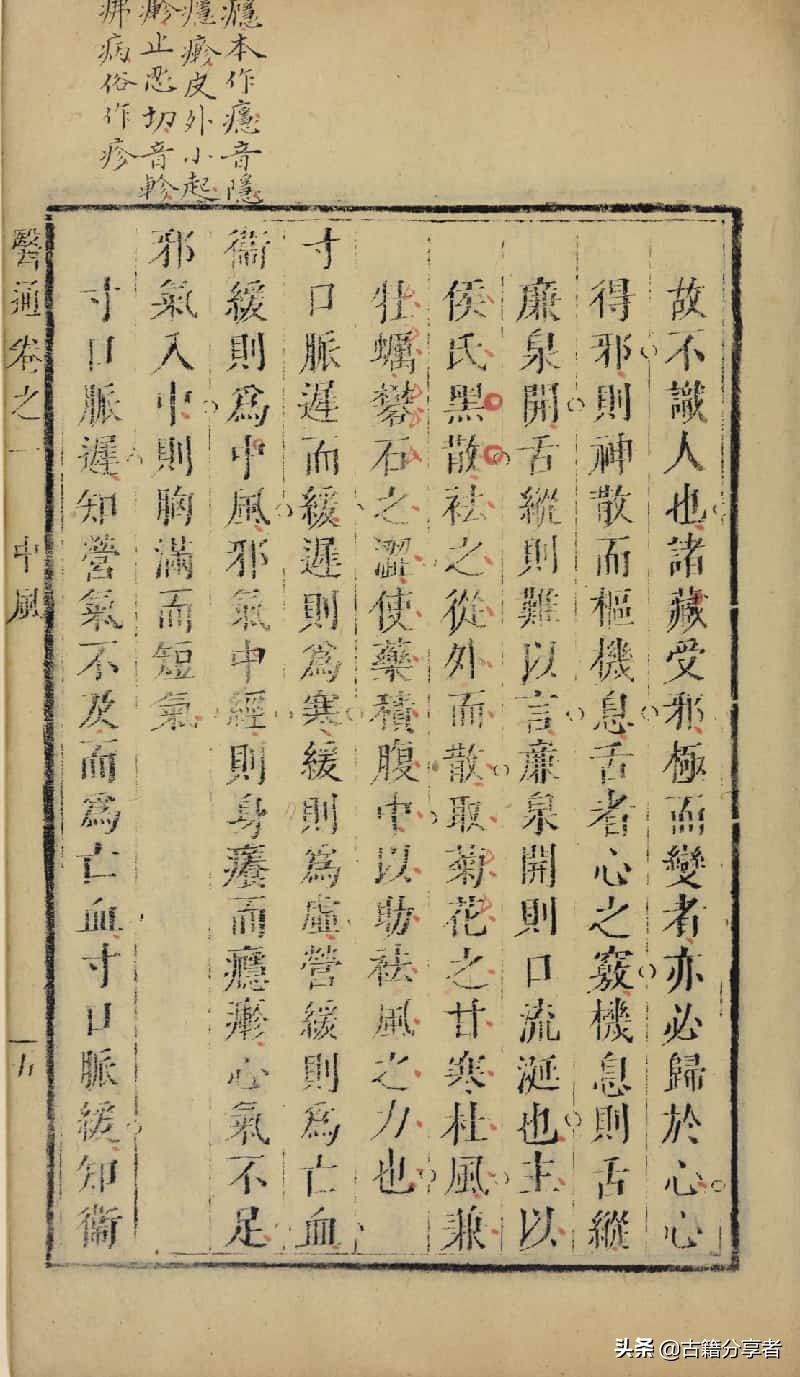 癮本作癮音隱
癮㾭皮外小起
㾭止忍切音軫
痱病俗作疹
故不識人也諸藏受邪極而變者亦必歸於心心
得邪則神散而樞機息舌者心之竅機息則舌縱
廉泉開舌縱則難以言廉泉開則口流涎也主以
侯氏黑散祛之從外而散取菊花之甘寒杜風兼
牡蠣礬石之澀使藥積腹中以助祛風之力也
寸口脈遲而緩遲則為寒緩則為虛營緩則為亡血
衞緩則為中風邪氣中經則身癢而癮㾭心氣不足
邪氣入中則胸滿而短氣
寸口脈遲知營氣不及而為亡血寸口脈緩知衞
醫通卷之一 中風
头条 @古籍分享者